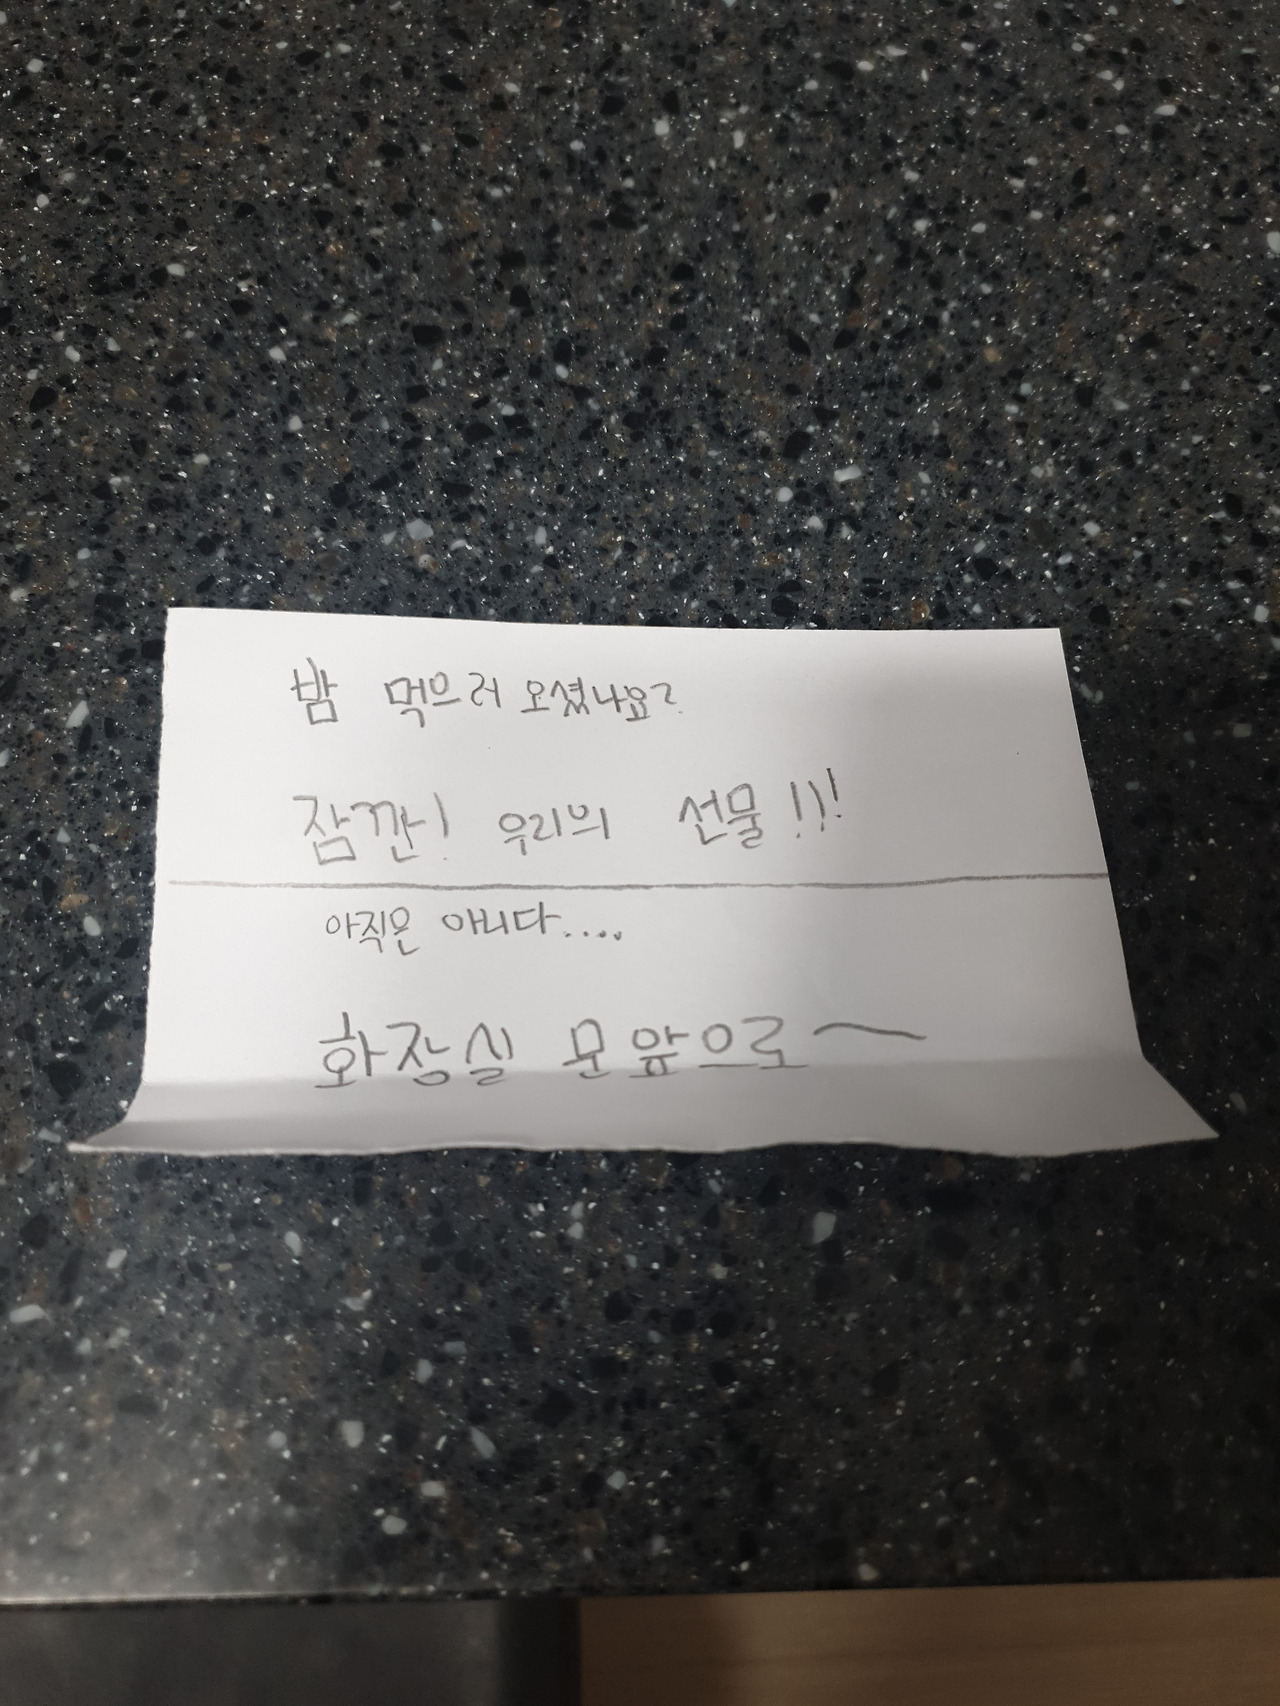 밤 먹으러 오셨나요?
잠깐! 우리의 선물!!!
아직은 아니다....
화장실 문앞으로~